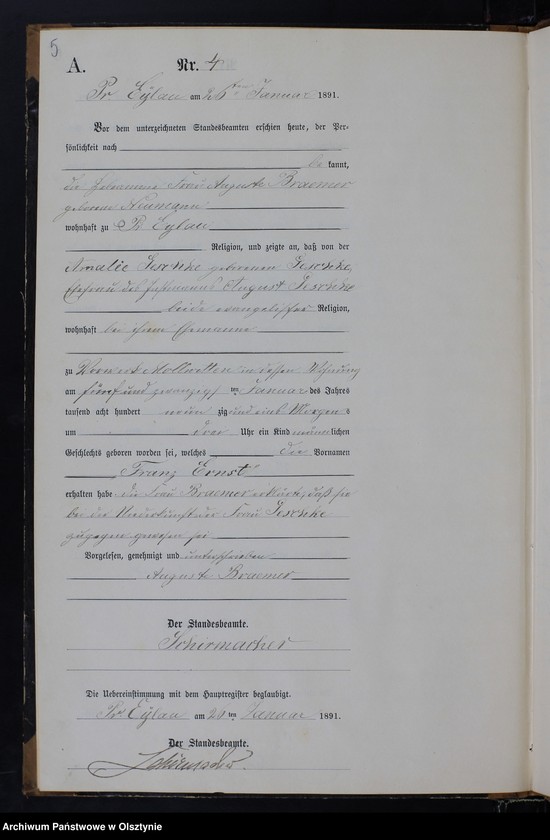 5
A. Nr. 4
Pr Eylau am 26ten Januar 1891.
Vor dem unterzeichneten Standesbeamten erschien heute, der Per-
sönlichkeit nach
be kannt,
die Hebamme Frau Auguste Braemer
geborene Neumann
wohnhaft zu Pr Eylau
Religion, und zeigte an, daß von der
Amalie Jeschke geborenen Jeschke,
Ehefrau des August Jeschke
beide evangelischer Religion,
wohnhaft bei ihrem Ehemanne
zu Vorwerk Mollwitten in dessen Wohnung
am fünf und zwanzigsten Januar des Jahres
tausend acht hundert neun zig und eins Morgens
um drei Uhr ein Kind männlichen
Geschlechts geboren worden sei, welches die Vornamen
Franz Ernst
erhalten habe die Frau Braemer erklärte, daß sie
bei der Niederkunft der Frau Jeschke
zugegen gewesen sei
Vorgelesen, genehmigt und unterschrieben
Auguste Braemer
Der Standesbeamte.
Schirmacher
Die Uebereinstimmung mit dem Hauptregister beglaubigt.
Pr Eylau am 26ten Januar 1891.
Der Standesbeamte.
Schirmacher.
Archiwum Państwowe w Olsztynie